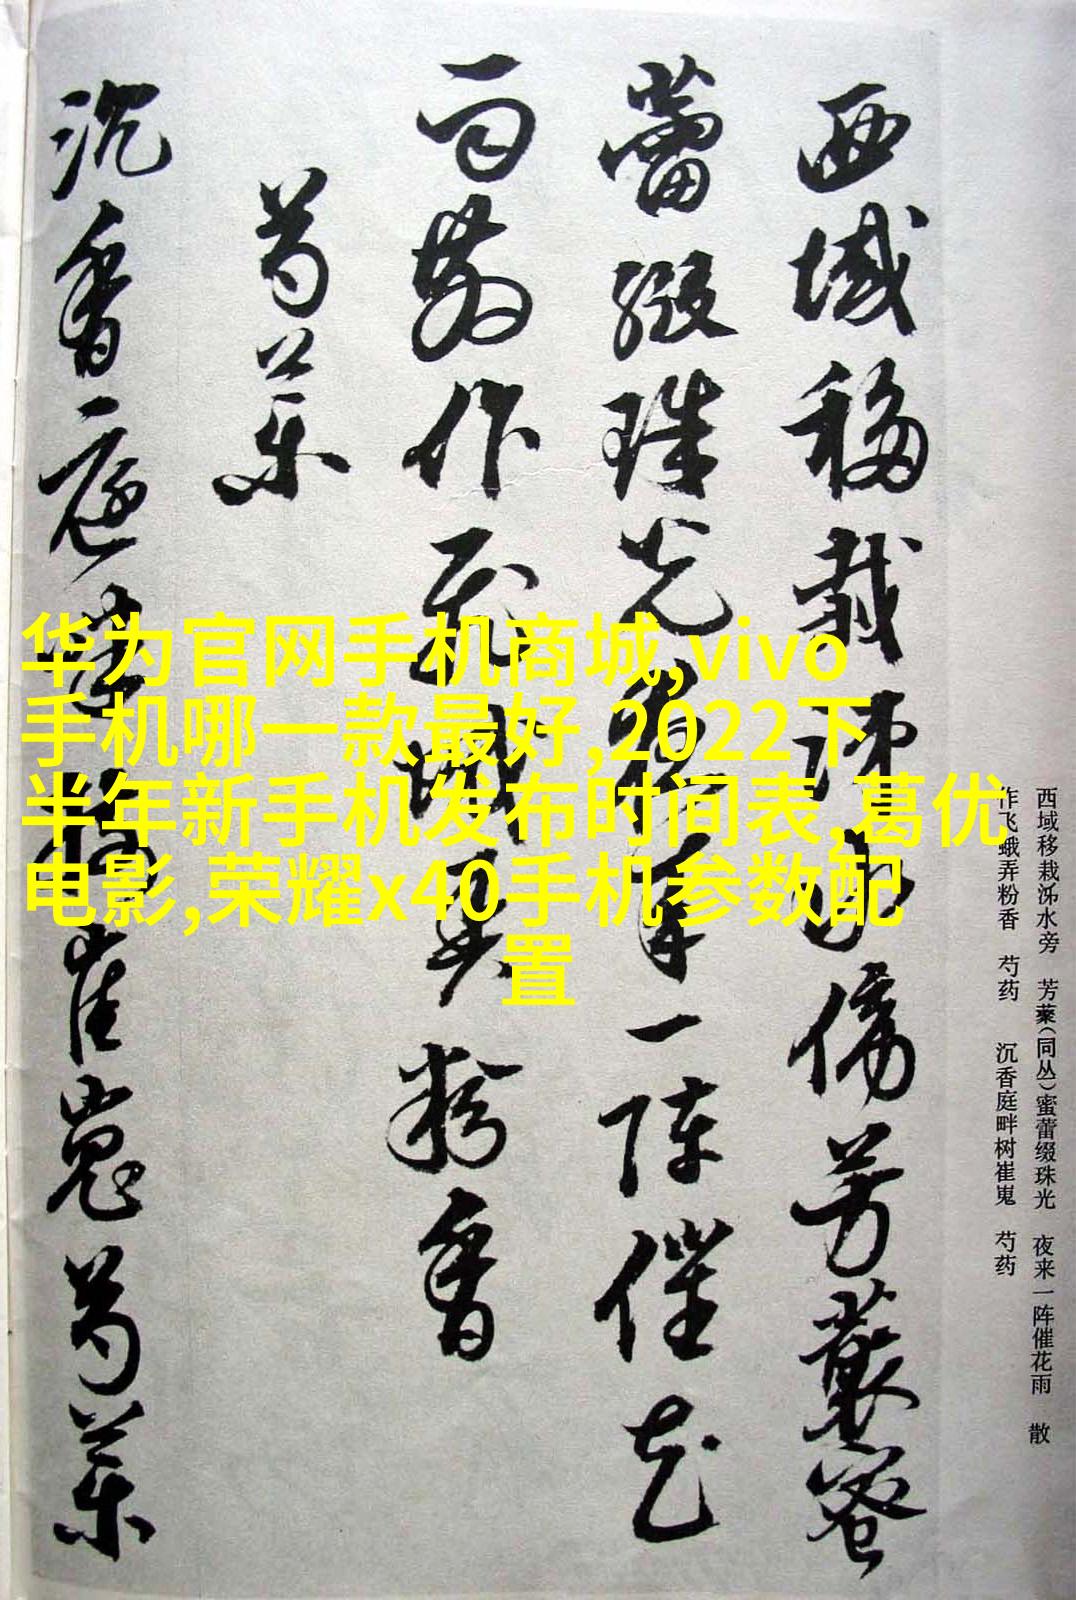 西域移栽泲水旁　芳藂(同丛)蜜蕾缀珠光　夜来一阵催花雨　散
作飞蛾弄粉香　芍药　沉香庭畔树崔嵬　芍药
西域移栽泲水傍芳藂蜜
蕾綴珠光夜來一陣催花
雨散作飛蛾弄粉香
芍藥
沉香庭畔樹崔嵬芍藥
华为官网手机商城,vivo
手机哪一款最好,2022下
半年新手机发布时间表,葛优
电影,荣耀x40手机参数配
置